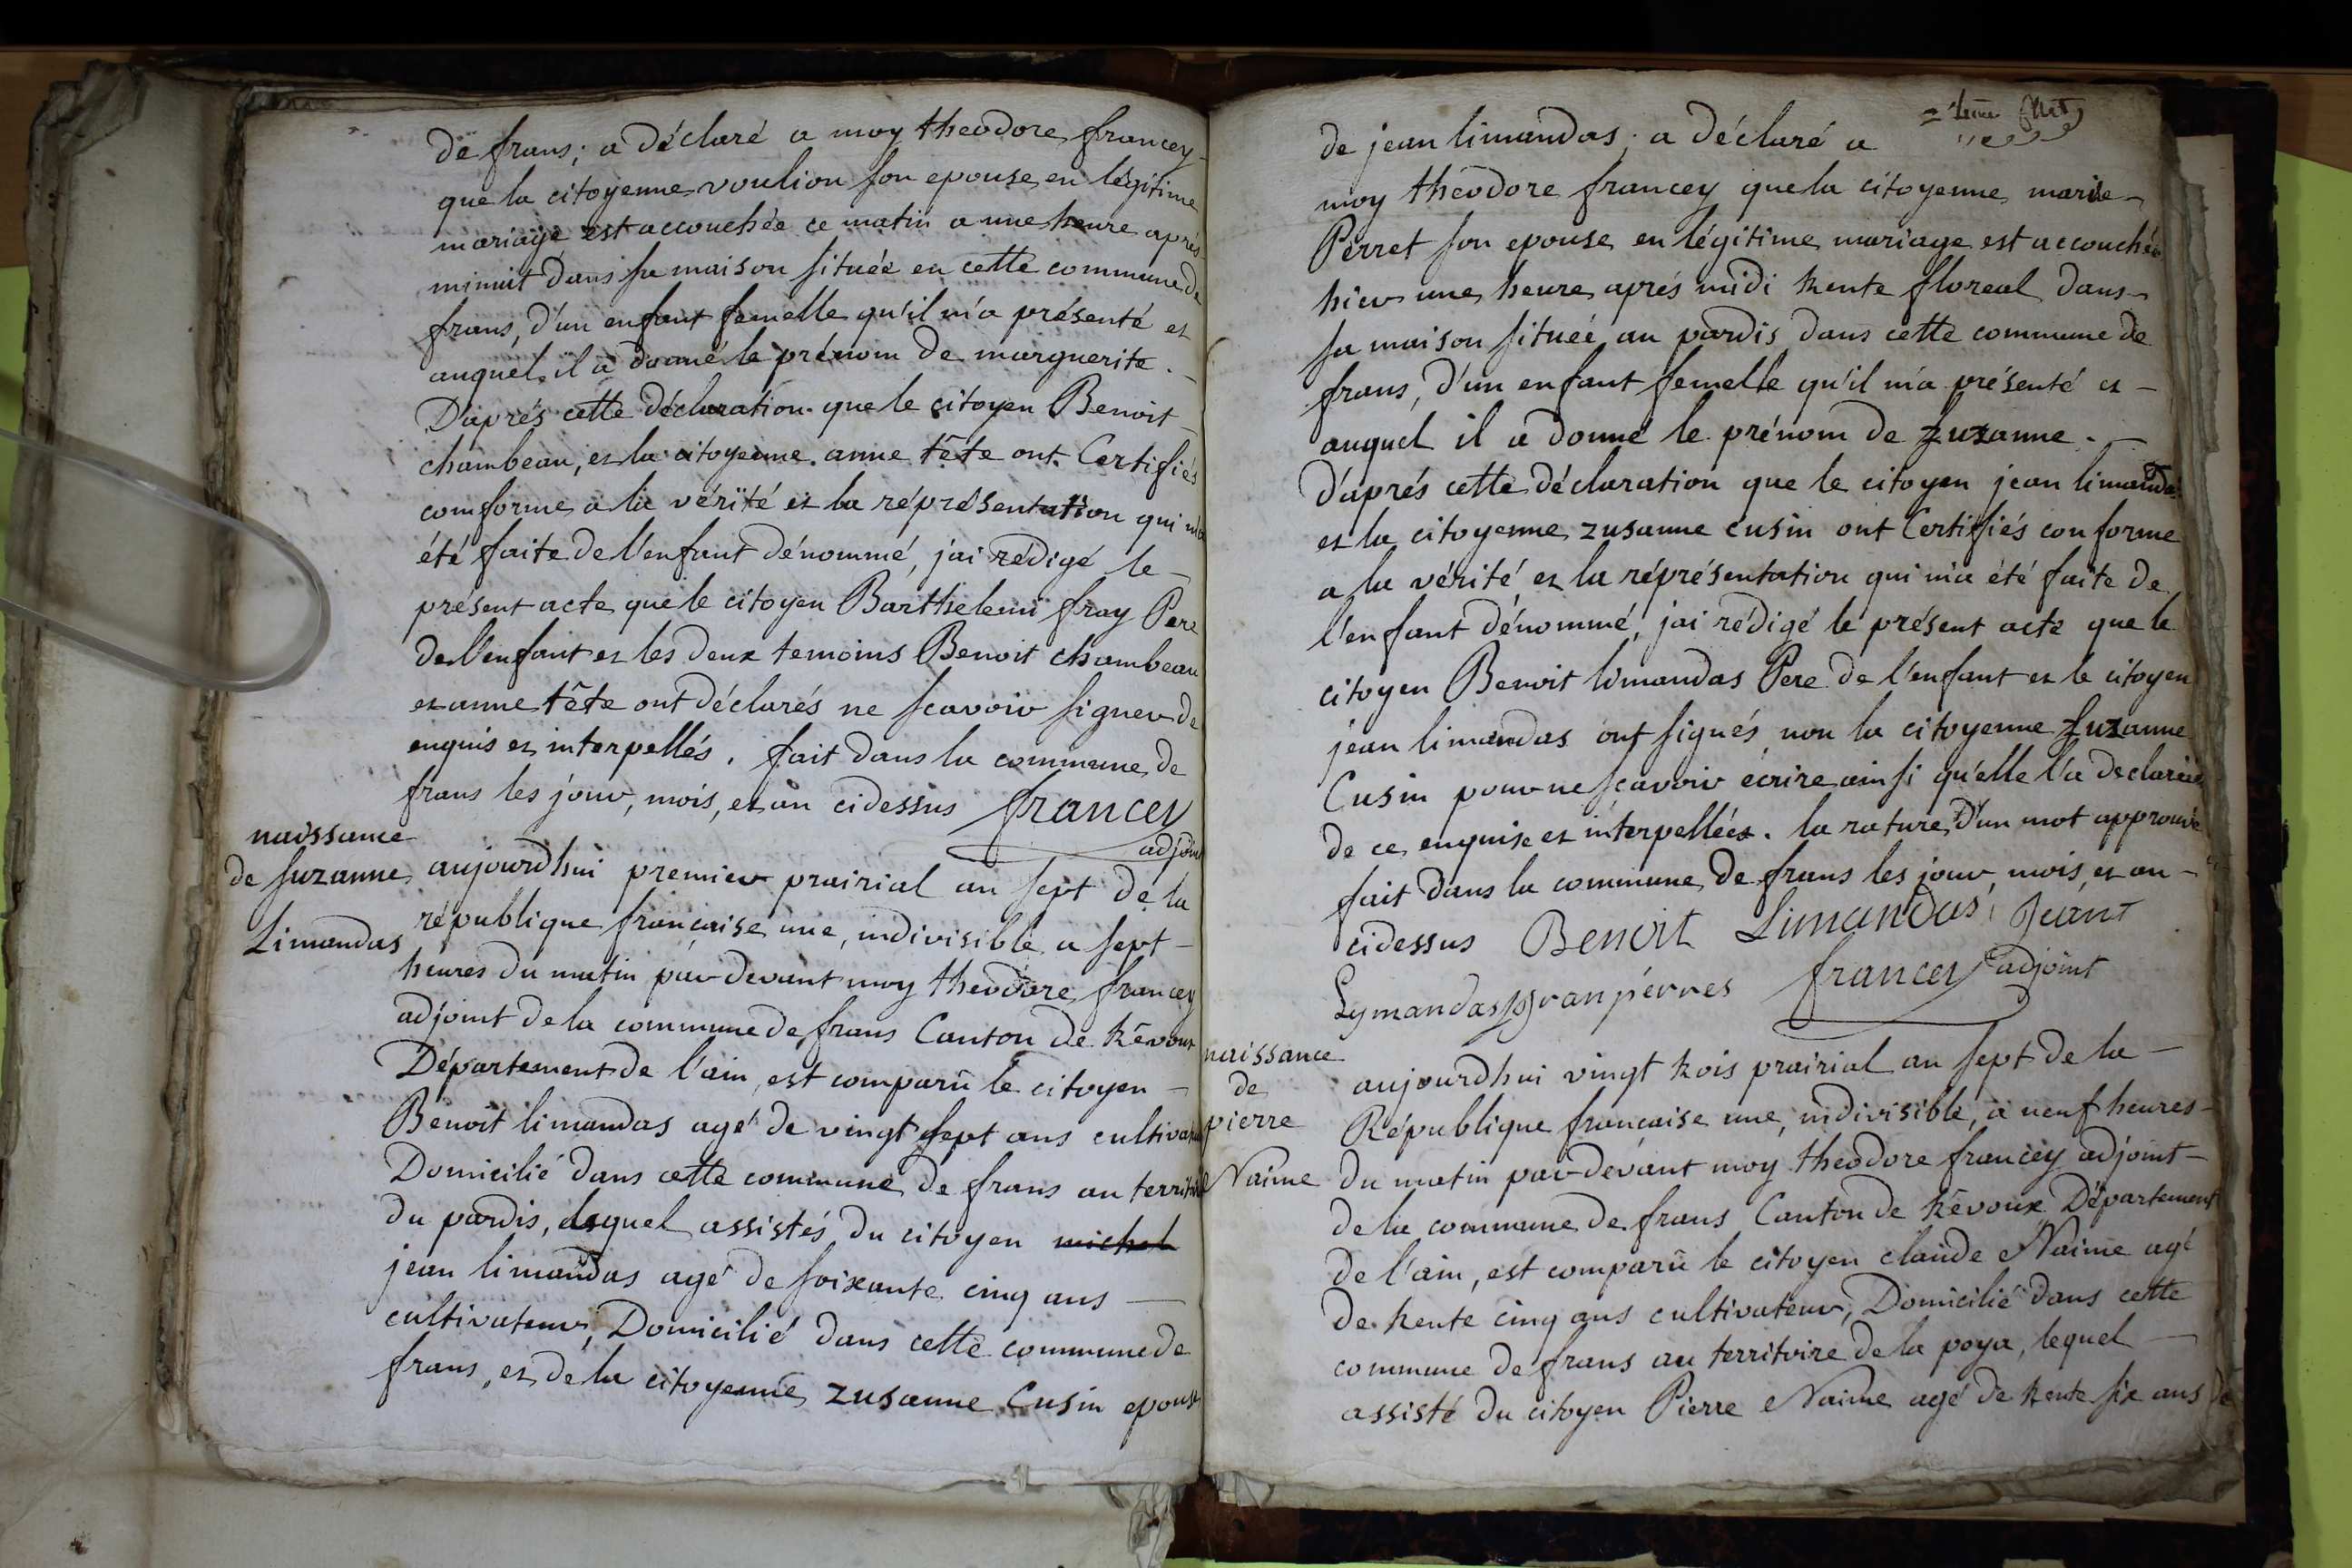 de frans; a déclaré a moy theodore francey
que la citoyenne voulion son epouse en légitime
mariage est accouchée ce matin a une heure aprés
minuit dans sa maison située en cette commune de
frans, d'un enfant femelle qu'il m'a présenté et
auquel il a donné le prénom de marguerite.
D'aprés cette déclaration que le citoyen Benoit
chambeau, et la citoyenne anne tête ont Certifiés
comforme a la vérité et la réprésentation qui m'a
été faite de l'enfant dénommé, j'ai rédigé le
présent acte que le citoyen Barthelemi fray Pere
de l'enfant et les deux temoins Benoit chambeau
et anne tête ont déclarés ne scavoir signer de
enquis et interpellés. fait dans la commune de
frans les jour, mois, et an cidessus francey
adjoint
naissance
de suzanne
Limandas
aujourdhui premier prairial an sept de la
république française une, indivisible a sept
heures du matin par devant moy theodore francey
adjoint de la commune de frans Canton de trévoux
Département de l'ain, est comparû le citoyen
Benoit limandas agé de vingt sept ans cultivateur
Domicilié dans cette commune de frans au territoire
du pardis, lequel assistés du citoyen michel
jean limandas agé de soixante cinq ans
cultivateur, Domicilié dans cette commune de
frans, et de la citoyenne zusanne Cusin epouse
de jean limandas; a déclaré a
moy théodore francey que la citoyenne marie
Perret son epouse en légitime mariage est accouchée
hier une heure aprés midi trente floreal dans
sa maison située au pardis dans cette commune de
frans, d'un enfant femelle qu'il m'a présenté et
auquel il a donné le prénom de zuzanne.
D'aprés cette déclaration que le citoyen jean limandas
et la citoyenne zusanne cusin ont Certifiés conforme
a la vérité et la réprésentation qui m'a été faite de
l'enfant dénommé, j'ai rédigé le présent acte que le
citoyen Benoit limandas Pere de l'enfant et le citoyen
jean limandas ont signés, non la citoyenne suzanne
Cusin pour ne scavoir écrire ainsi qu'elle l'a declarée
de ce enquise et interpellée. la rature d'un mot approuvé
fait dans la commune de frans les jour, mois, et an
cidessus Benoit Limandas Jean
Lymandas granpérres francey adjoint
naissance
de
pierre
Naime
aujourdhui vingt trois prairial an sept de la
République française une, indivisible, a neuf heures
du matin par devant moy theodore francey adjoint
de la commune de frans Canton de trévoux Département
de l'ain, est comparû le citoyen claude Naime agé
de trente cinq ans cultivateur, Domicilié dans cette
commune de frans au territoire de la poya, lequel
assisté du citoyen Pierre Naime agé de trente six ans de